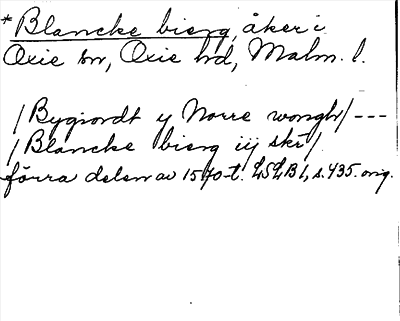 *Blancke bierg, åker i
Oxie sn, Oxie hd, Malm. l.
/Bygiordt y Norre wongh/ ---
/Blancke bierg iij skr/
förra delen av 1570-t. LSLB 1, s. 435. orig.